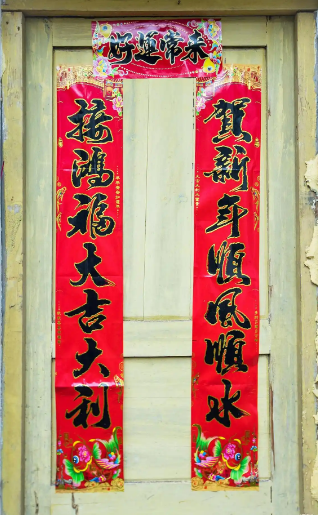 好運常來
賀新年順風順水
接鴻福大吉大利